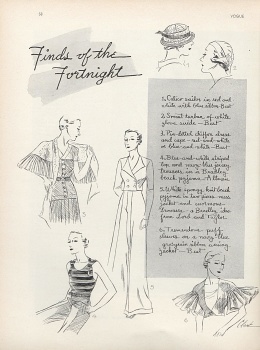 VOGUE
Finds of the
Fortnight
1. Color sailor in red and
white with blue ribbon—Best
2. Smart turban of white
glove suède—Best
3. Pin-dotted chiffon dress
and cape—red-and-white
or blue-and-white—Best
4. Blue-and-white striped
top and navy-blue jersey
trousers, in a Bradley
beach pyjama—Altman
5. White spongy knit beach
pyjama in two pieces, mess
jacket and
trousers, a Bradley
from Lord and Taylor
6. Tremendous puff
sleeves on a navy-blue
evening
jacket—Best